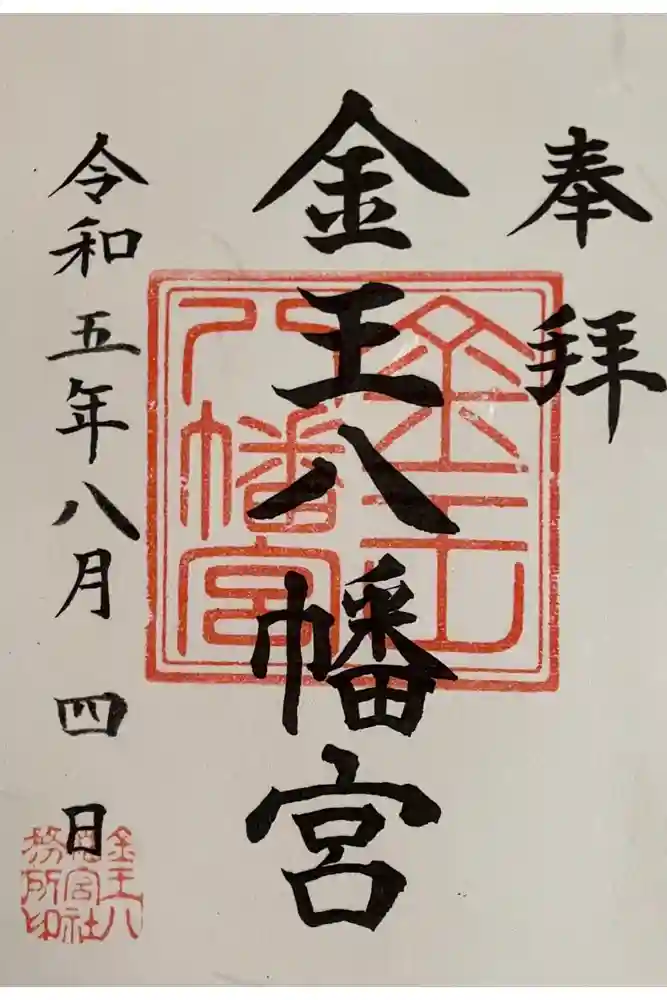 奉拝
金王八幡宮
令和五年八月四日
金王八幡宮
金王八幡宮社務所印